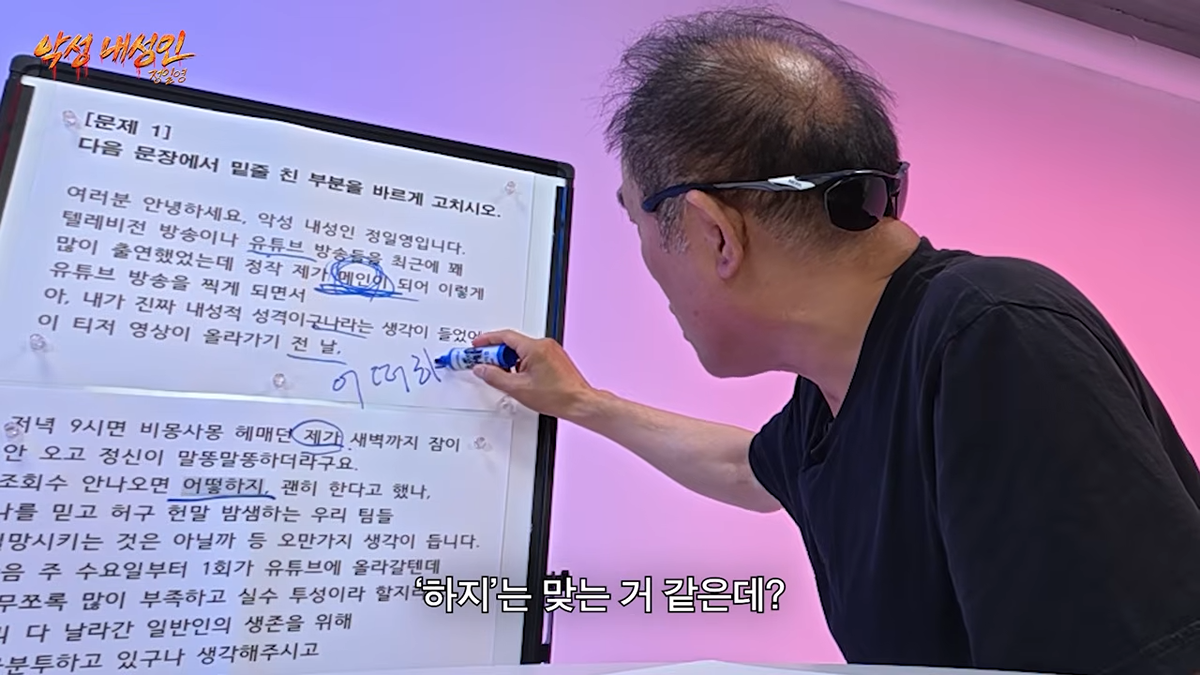 악성 내성인
정일영
[문제 1]
다음 문장에서 밑줄 친 부분을 바르게 고치시오.
여러분 안녕하세요, 악성 내성인 정일영입니다.
텔레비전 방송이나 유튜브 방송들을 최근에 꽤
많이 출연했었는데 정작 제가 메인이 되어 이렇게
유튜브 방송을 찍게 되면서
아, 내가 진짜 내성적 성격이구나라는 생각이 들었어
이 티저 영상이 올라가기 전 날,
어떠하
저녁 9시면 비몽사몽 헤매던 제가 새벽까지 잠이
안 오고 정신이 말똥말똥하더라구요.
조회수 안나오면 어떻하지, 괜히 한다고 했나,
나를 믿고 허구 헌말 밤샘하는 우리 팀들
망시키는 것은 아닐까 등 오만가지 생각이 듭니다.
음 주 수요일부터 1회가 유튜브에 올라갈텐데
무쪼록 많이 부족하고 실수 투성이라 할지라
다 날라간 일반인의 생존을 위해
분투하고 있구나 생각해주시고
‘하지’는 맞는 거 같은데?